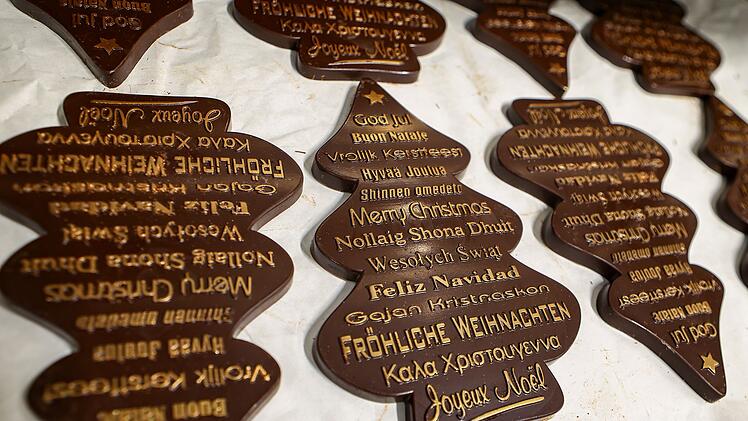 God Jul
Buon Natale
Vrolijk Kerstfeest
Hyvää Joulua
Shinnen omedeto
Merry Christmas
Nollaig Shona Dhuit
Wesołych Świąt
Feliz Navidad
Gajan Kristnaskon
FRÖHLICHE WEIHNACHTEN
Καλα Χριστουγεννα
Joyeux Noël
God Jul
Buon Natale
Vrolijk Kerstfeest
Hyvää Joulua
Shinnen omedeto
Merry Christmas
Nollaig Shona Dhuit
Wesołych Świąt
Feliz Navidad
Gajan Kristnaskon
FRÖHLICHE WEIHNACHTEN
Καλα Χριστουγεννα
Joyeux Noël
Buon Natale
Vrolijk Kerstfeest
Hyvää Joulua
Shinnen omedeto
Merry Christmas
Nollaig Shona Dhuit
Wesołych Świąt
Feliz Navidad
Gajan Kristnaskon
FRÖHLICHE WEIHNACHTEN
Καλα Χριστουγεννα
Joyeux Noël
God Jul
Buon Natale
FRÖHLICHE WEIHNACHTEN
Καλα Χριστουγεννα
Joyeux Noël